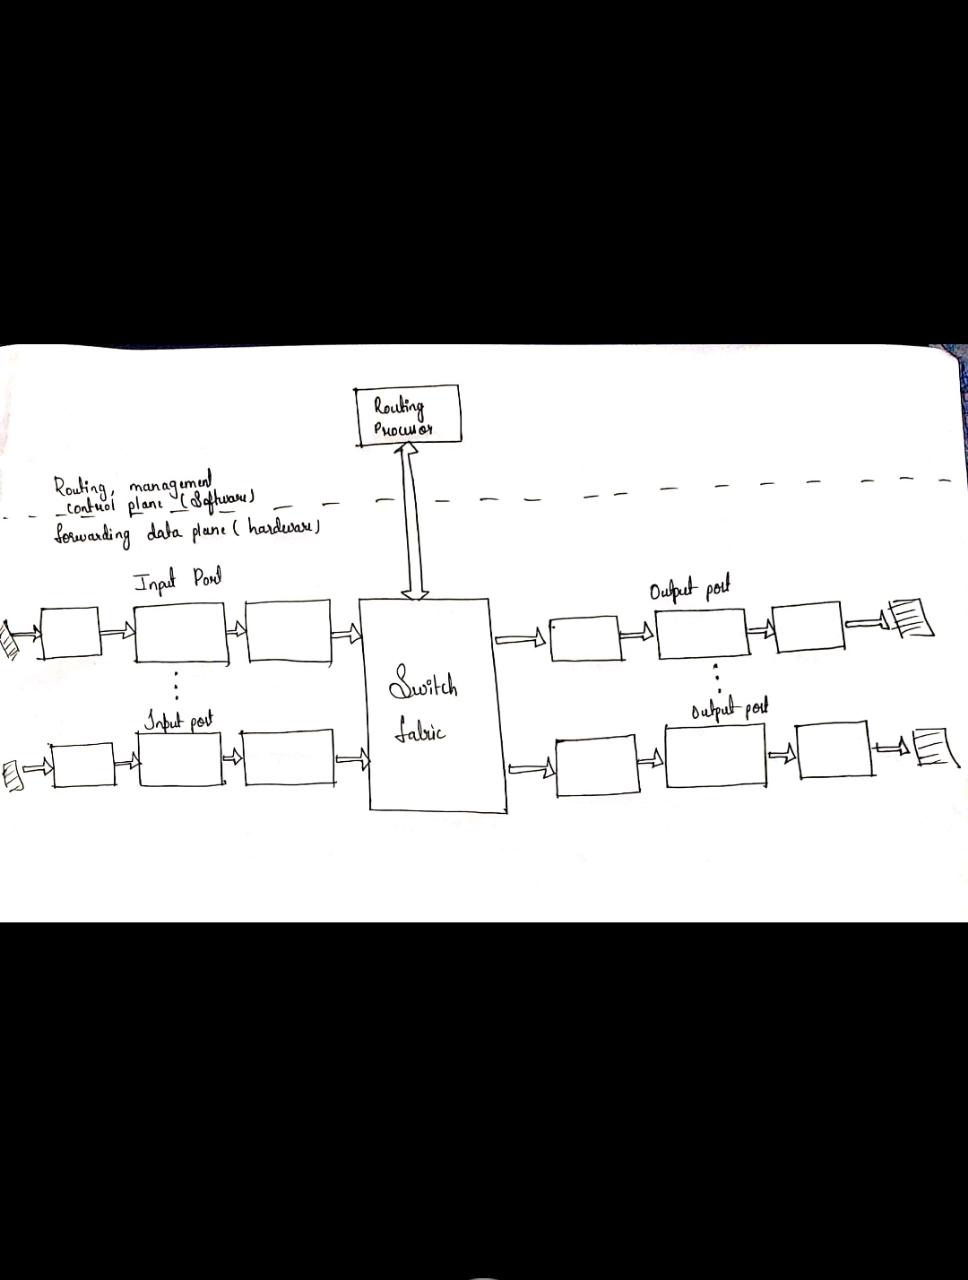 Routing
Processor
Routing, management
control plane (Software)
forwarding data plane (hardware)
Input Port
Output port
Switch
fabric
Input port
Output port